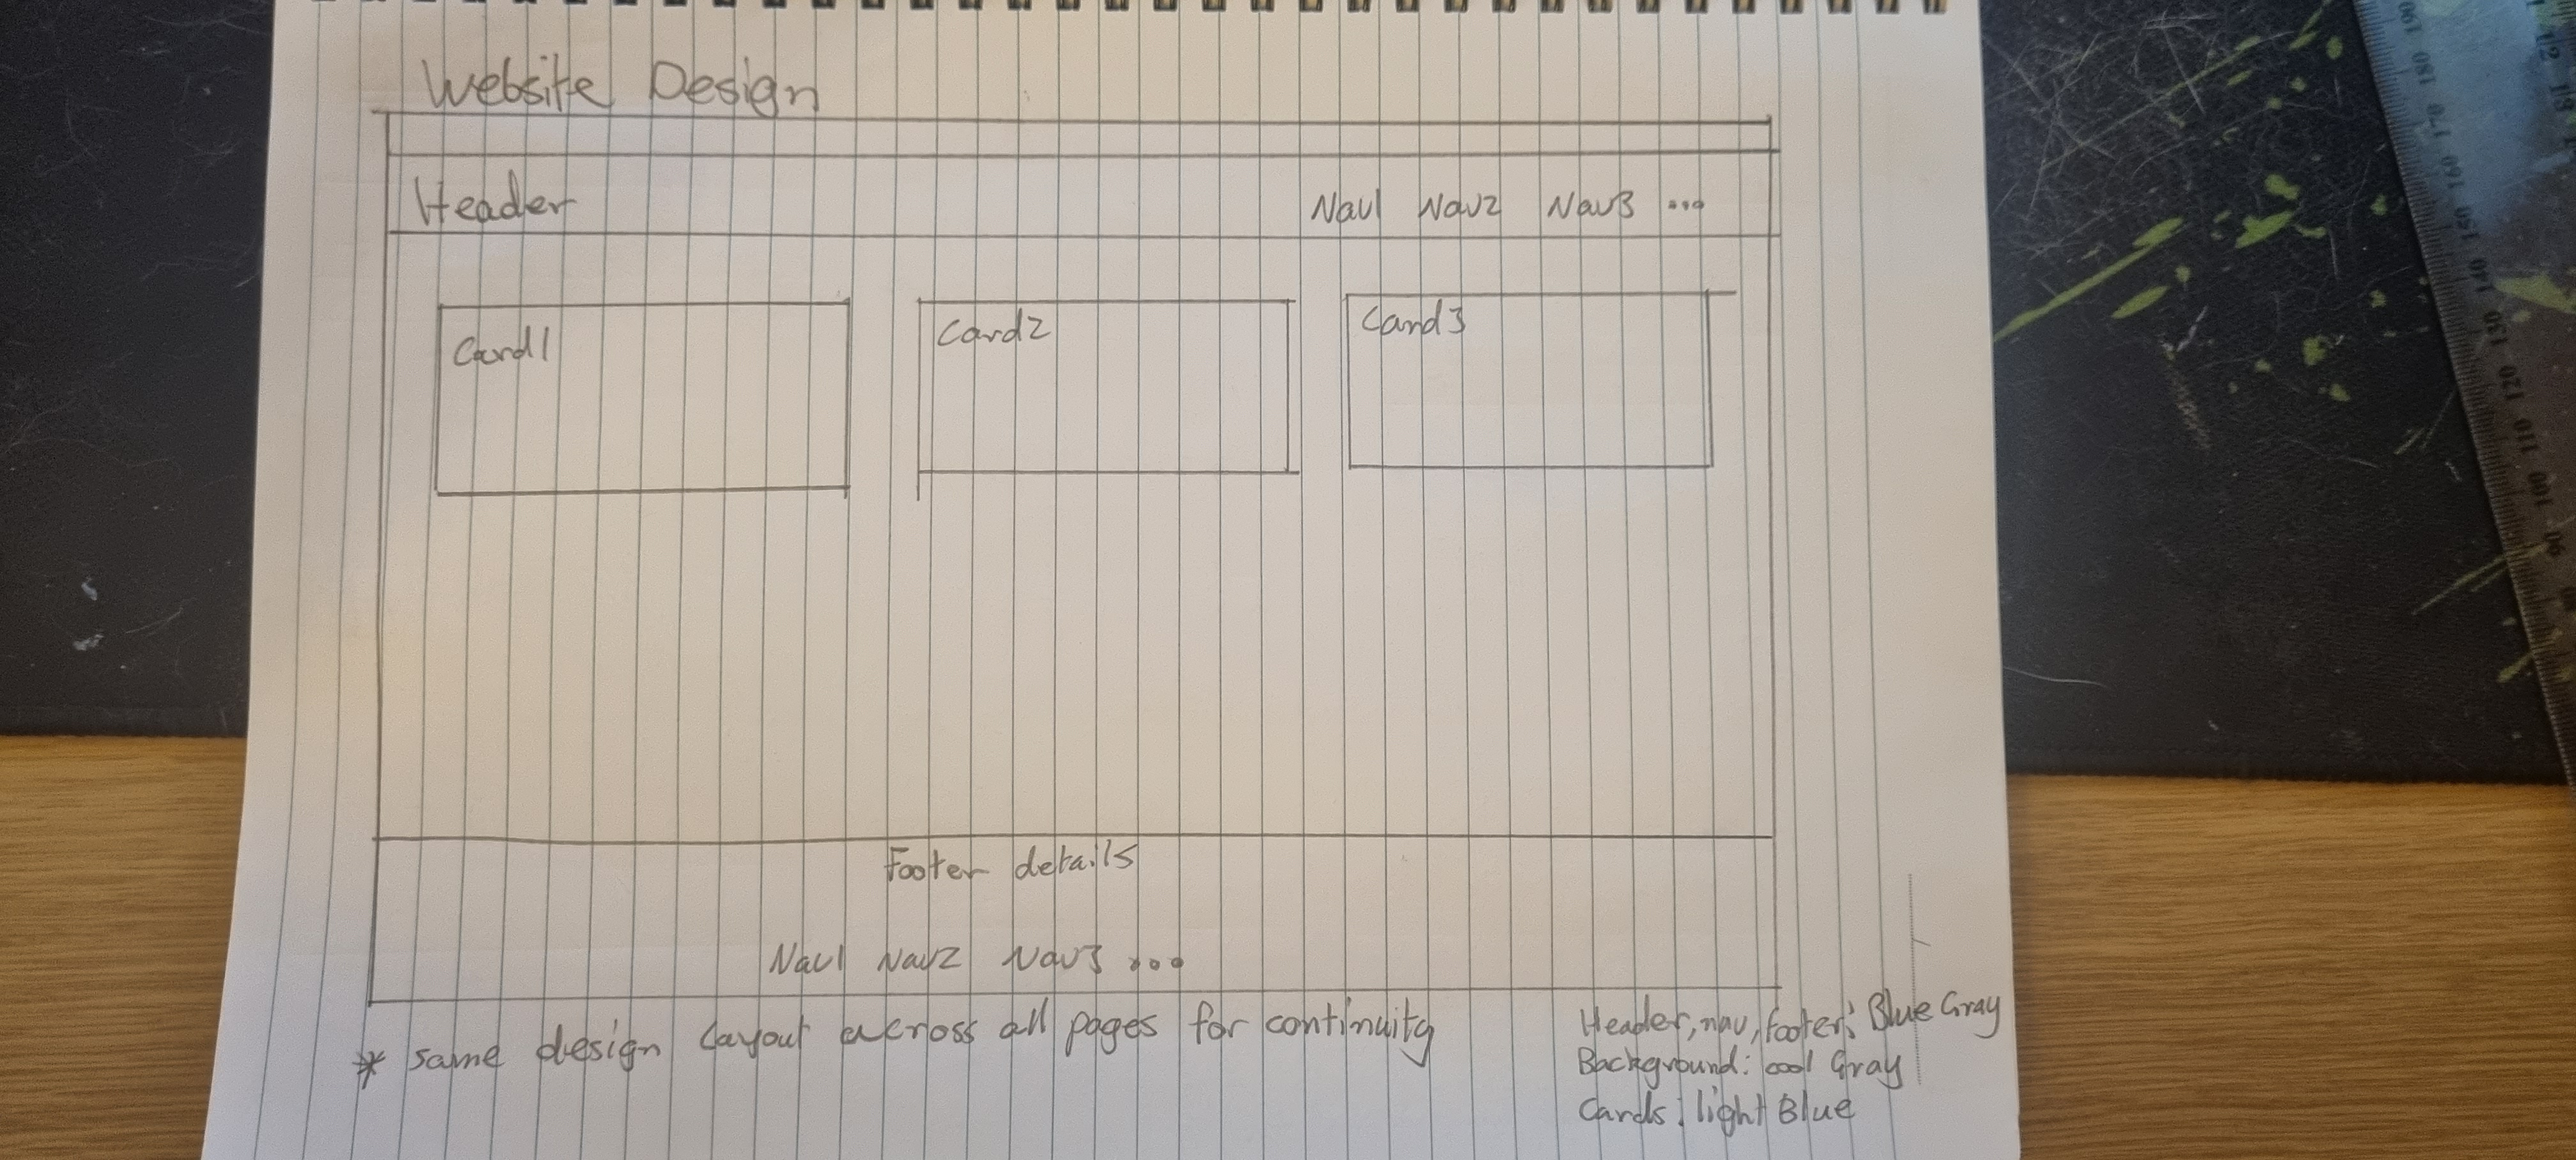 Website Design
Header Nav1 Nav2 Nav3 ...
Card1 Card2 Card3
Footer details
Nav1 Nav2 Nav3 ...
* same design layout across all pages for continuity
Header, nav, footer: Blue Gray
Background: cool Gray
Cards: light Blue
190 180 170 160 150 140 130 120 110 100 90
12 13